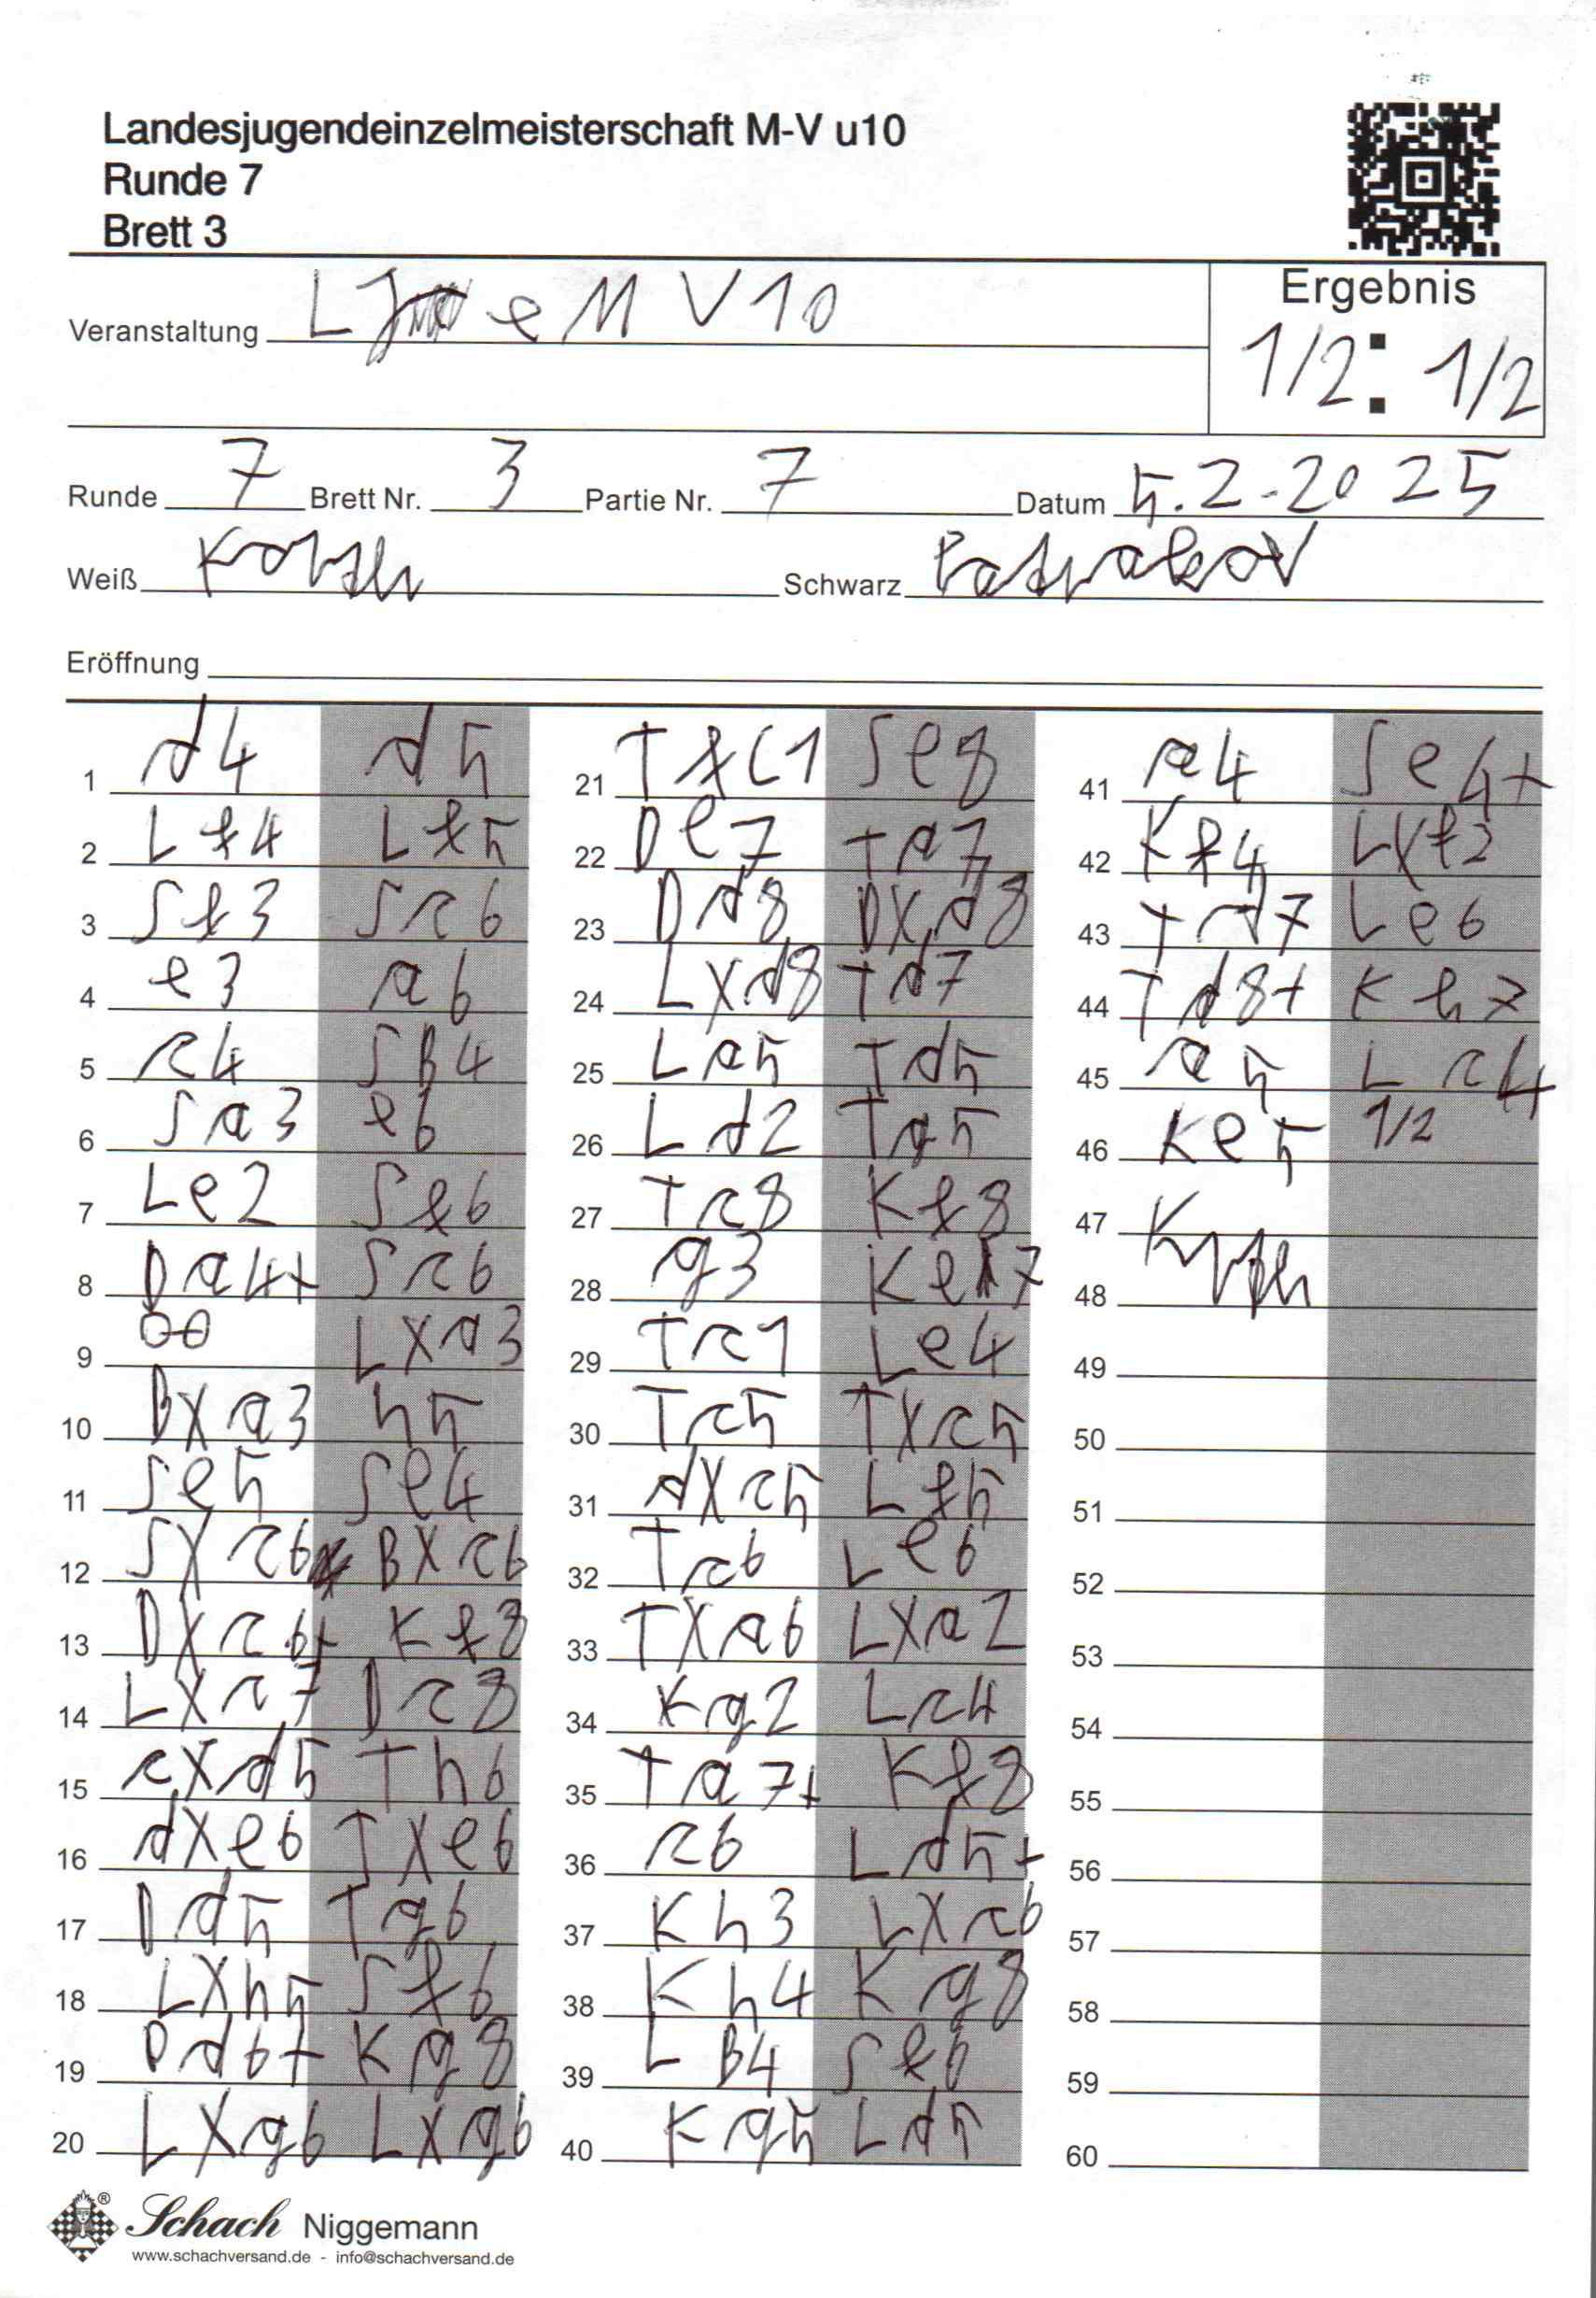 Landesjugendeinzelmeisterschaft M-V u10
Runde 7
Brett 3
Ergebnis
1/2 : 1/2
Veranstaltung L J e M V 10
Runde 7 Brett Nr. 3 Partie Nr. 7 Datum 5.2.2025
Weiß Schwarz
Eröffnung
1 d4 d5
2 Lf4 Lf5
3 Sf3 Sc6
4 e3 a6
5 c4 SB4
6 Sa3 e6
7 Le2 Sf6
8 Da4+ Sc6
9 00 LXa3
10 BXa3 h5
11 Se5 Se4
12 SXc6 BXc6
13 DXc6+ Kf8
14 LXc7 Dc8
15 cXd5 Th6
16 dXe6 TXe6
17 Dd5 Tg6
18 LXh5 Sf6
19 Dd6+ Kg8
20 LXg6 LXg6
21 Tfc1 Se8
22 De7 Ta7
23 Dd8 DXd8
24 LXd8 Td7
25 La5 Td5
26 Ld2 Ta5
27 Tc8 Kf8
28 g3 Ke7
29 Tc1 Le4
30 Tc5 TXc5
31 dXc5 Lf5
32 Tc6 Le6
33 TXa6 LXa2
34 Kg2 Lc4
35 Ta7+ Kf8
36 c6 Ld5+
37 Kh3 LXc6
38 Kh4 Kg8
39 LB4 Sf6
40 Kg5 Ld5
41 a4 Se4+
42 Kf4 LXf2
43 Td7 Le6
44 Td8+ Kh7
45 a5 Lc4
46 Ke5 1/2
47
48
49
50
51
52
53
54
55
56
57
58
59
60
Schach Niggemann
www.schachversand.de - info@schachversand.de